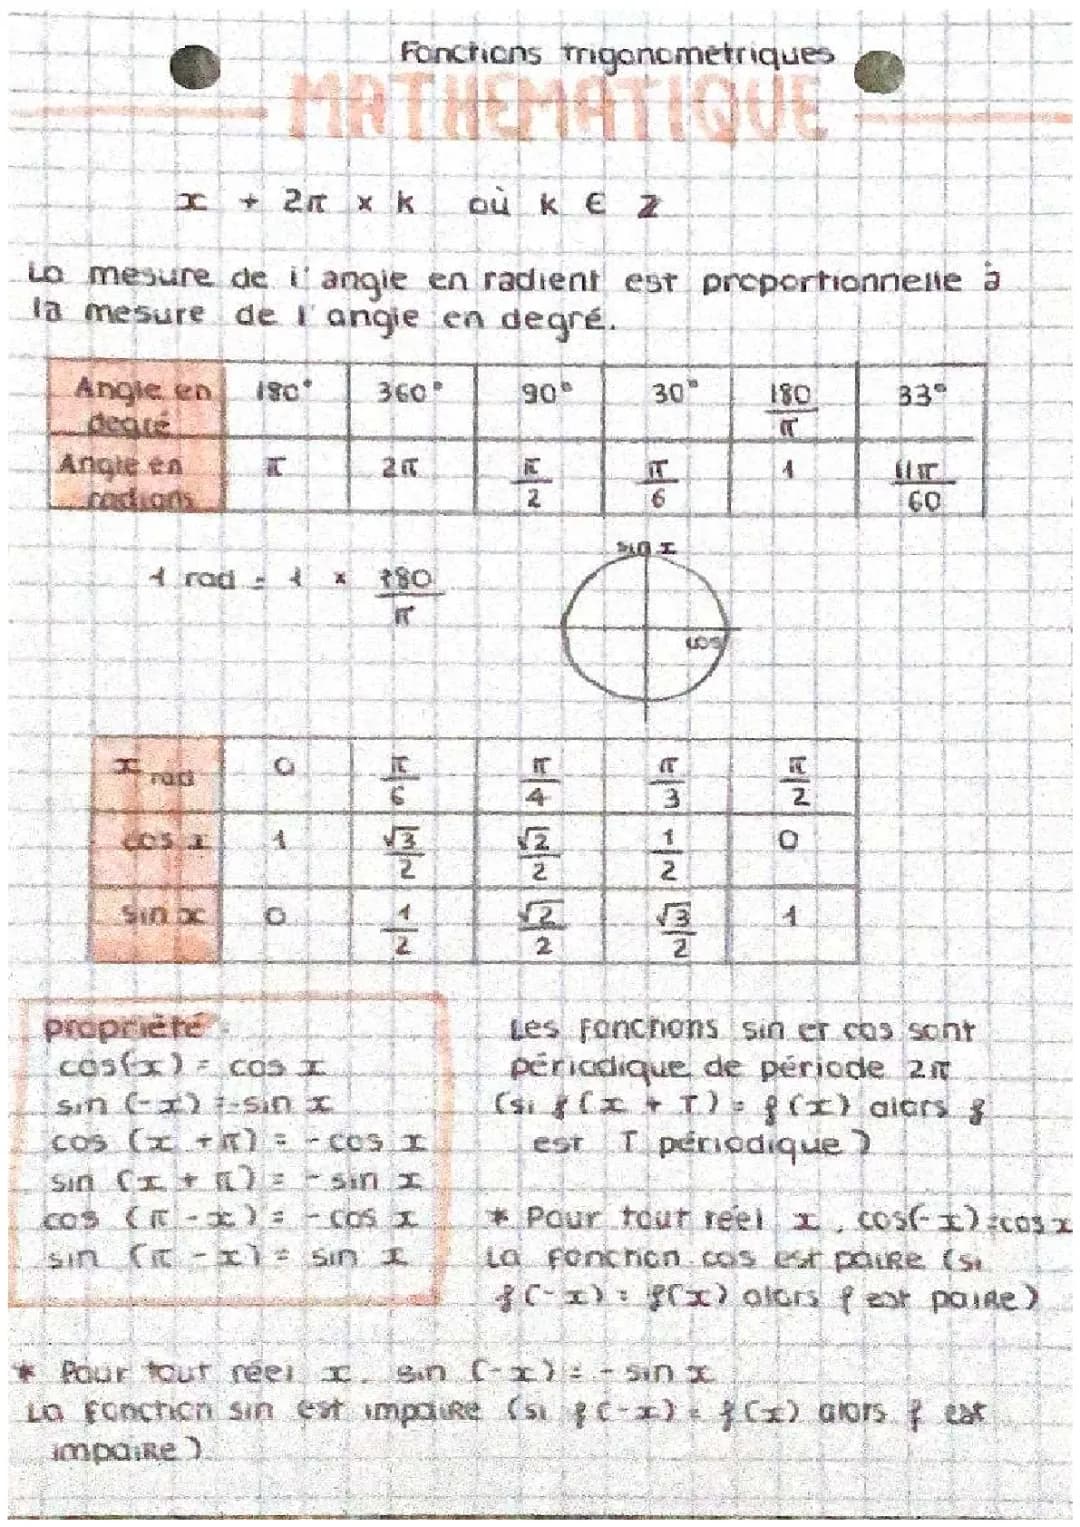 Fonctions trigonométriques
MATHEMATIQUE
x + 2π x k où k ∈ Z
La mesure de l'angle en radient est proportionnelle à
la mesure de l'angle en degré.
Angle en degré 180° 360° 90° 30° 180/π 33°
Angle en radians π 2π π/2 π/6 1 11π/60
sin x
1 rad = 1 x 180/π
cos
x rad 0 π/6 π/4 π/3 π/2
cos x 1 √3/2 √2/2 1/2 0
sin x 0 1/2 √2/2 √3/2 1
propriété :
cos(-x) = cos x
sin (-x) = -sin x
cos (x + π) = - cos x
sin (x + π) = - sin x
cos (π - x) = - cos x
sin (π - x) = sin x
Les fonctions sin et cos sont
périodique de période 2π
(si f (x + T) = f (x) alors f
est T périodique)
* Pour tout réel x, cos(-x)=cos x
La fonction cos est paire (si
f(-x) = f(x) alors f est paire)
* Pour tout réel x, sin (-x) = - sin x
La fonction sin est impaire (si f(-x) = f(x) alors f est
impaire)